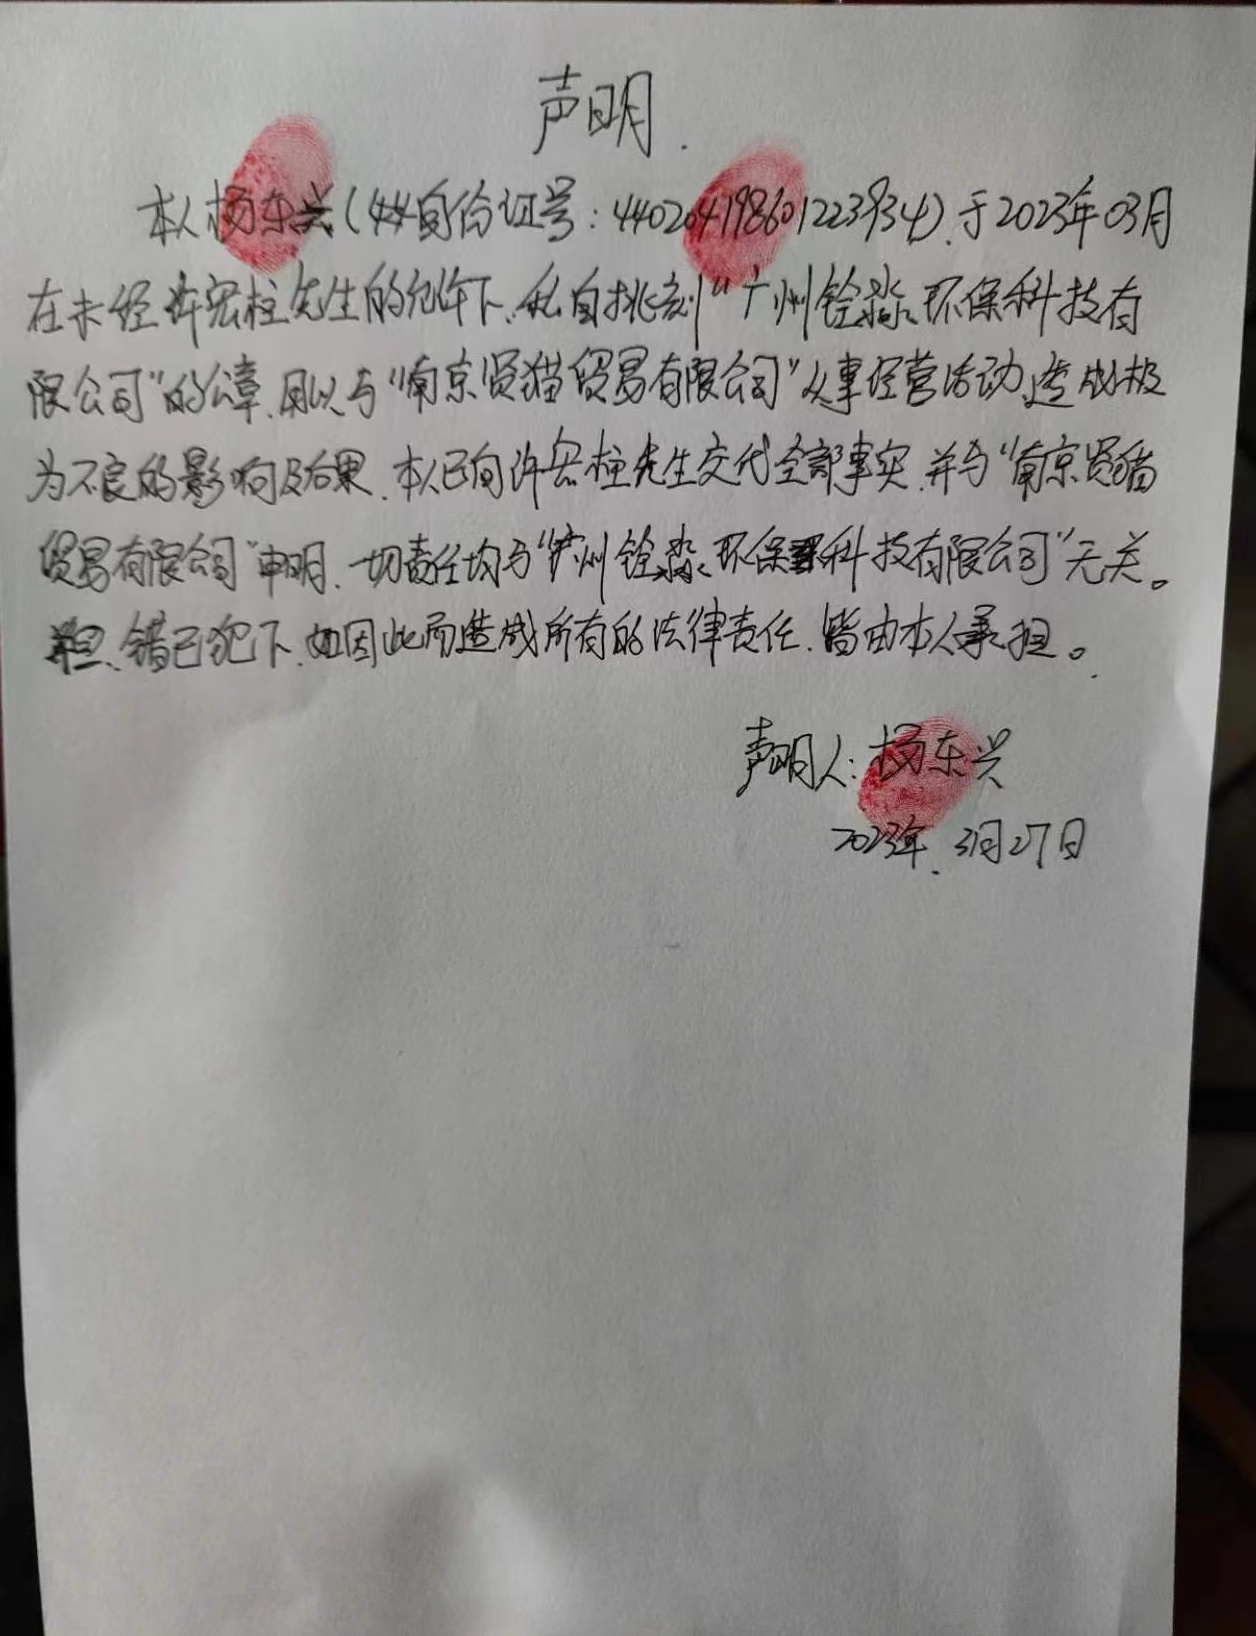 声明.
本人杨东兴(身份证号:440204198601223934).于2023年03月
在未经许宏柱先生的允许下、私自挑刻“广州铨淼环保科技有
限公司”的公章.用以与“南京贤猫贸易有限公司”从事经营活动、造成极
为不良的影响及后果.本人已向许宏柱先生交代全部事实.并与“南京贤猫
贸易有限公司”申明、一切责任均与“广州铨淼环保科技有限公司”无关。
错已犯下、如因此而造成所有的法律责任.皆由本人承担。
声明人:杨东兴
2023年.3月27日